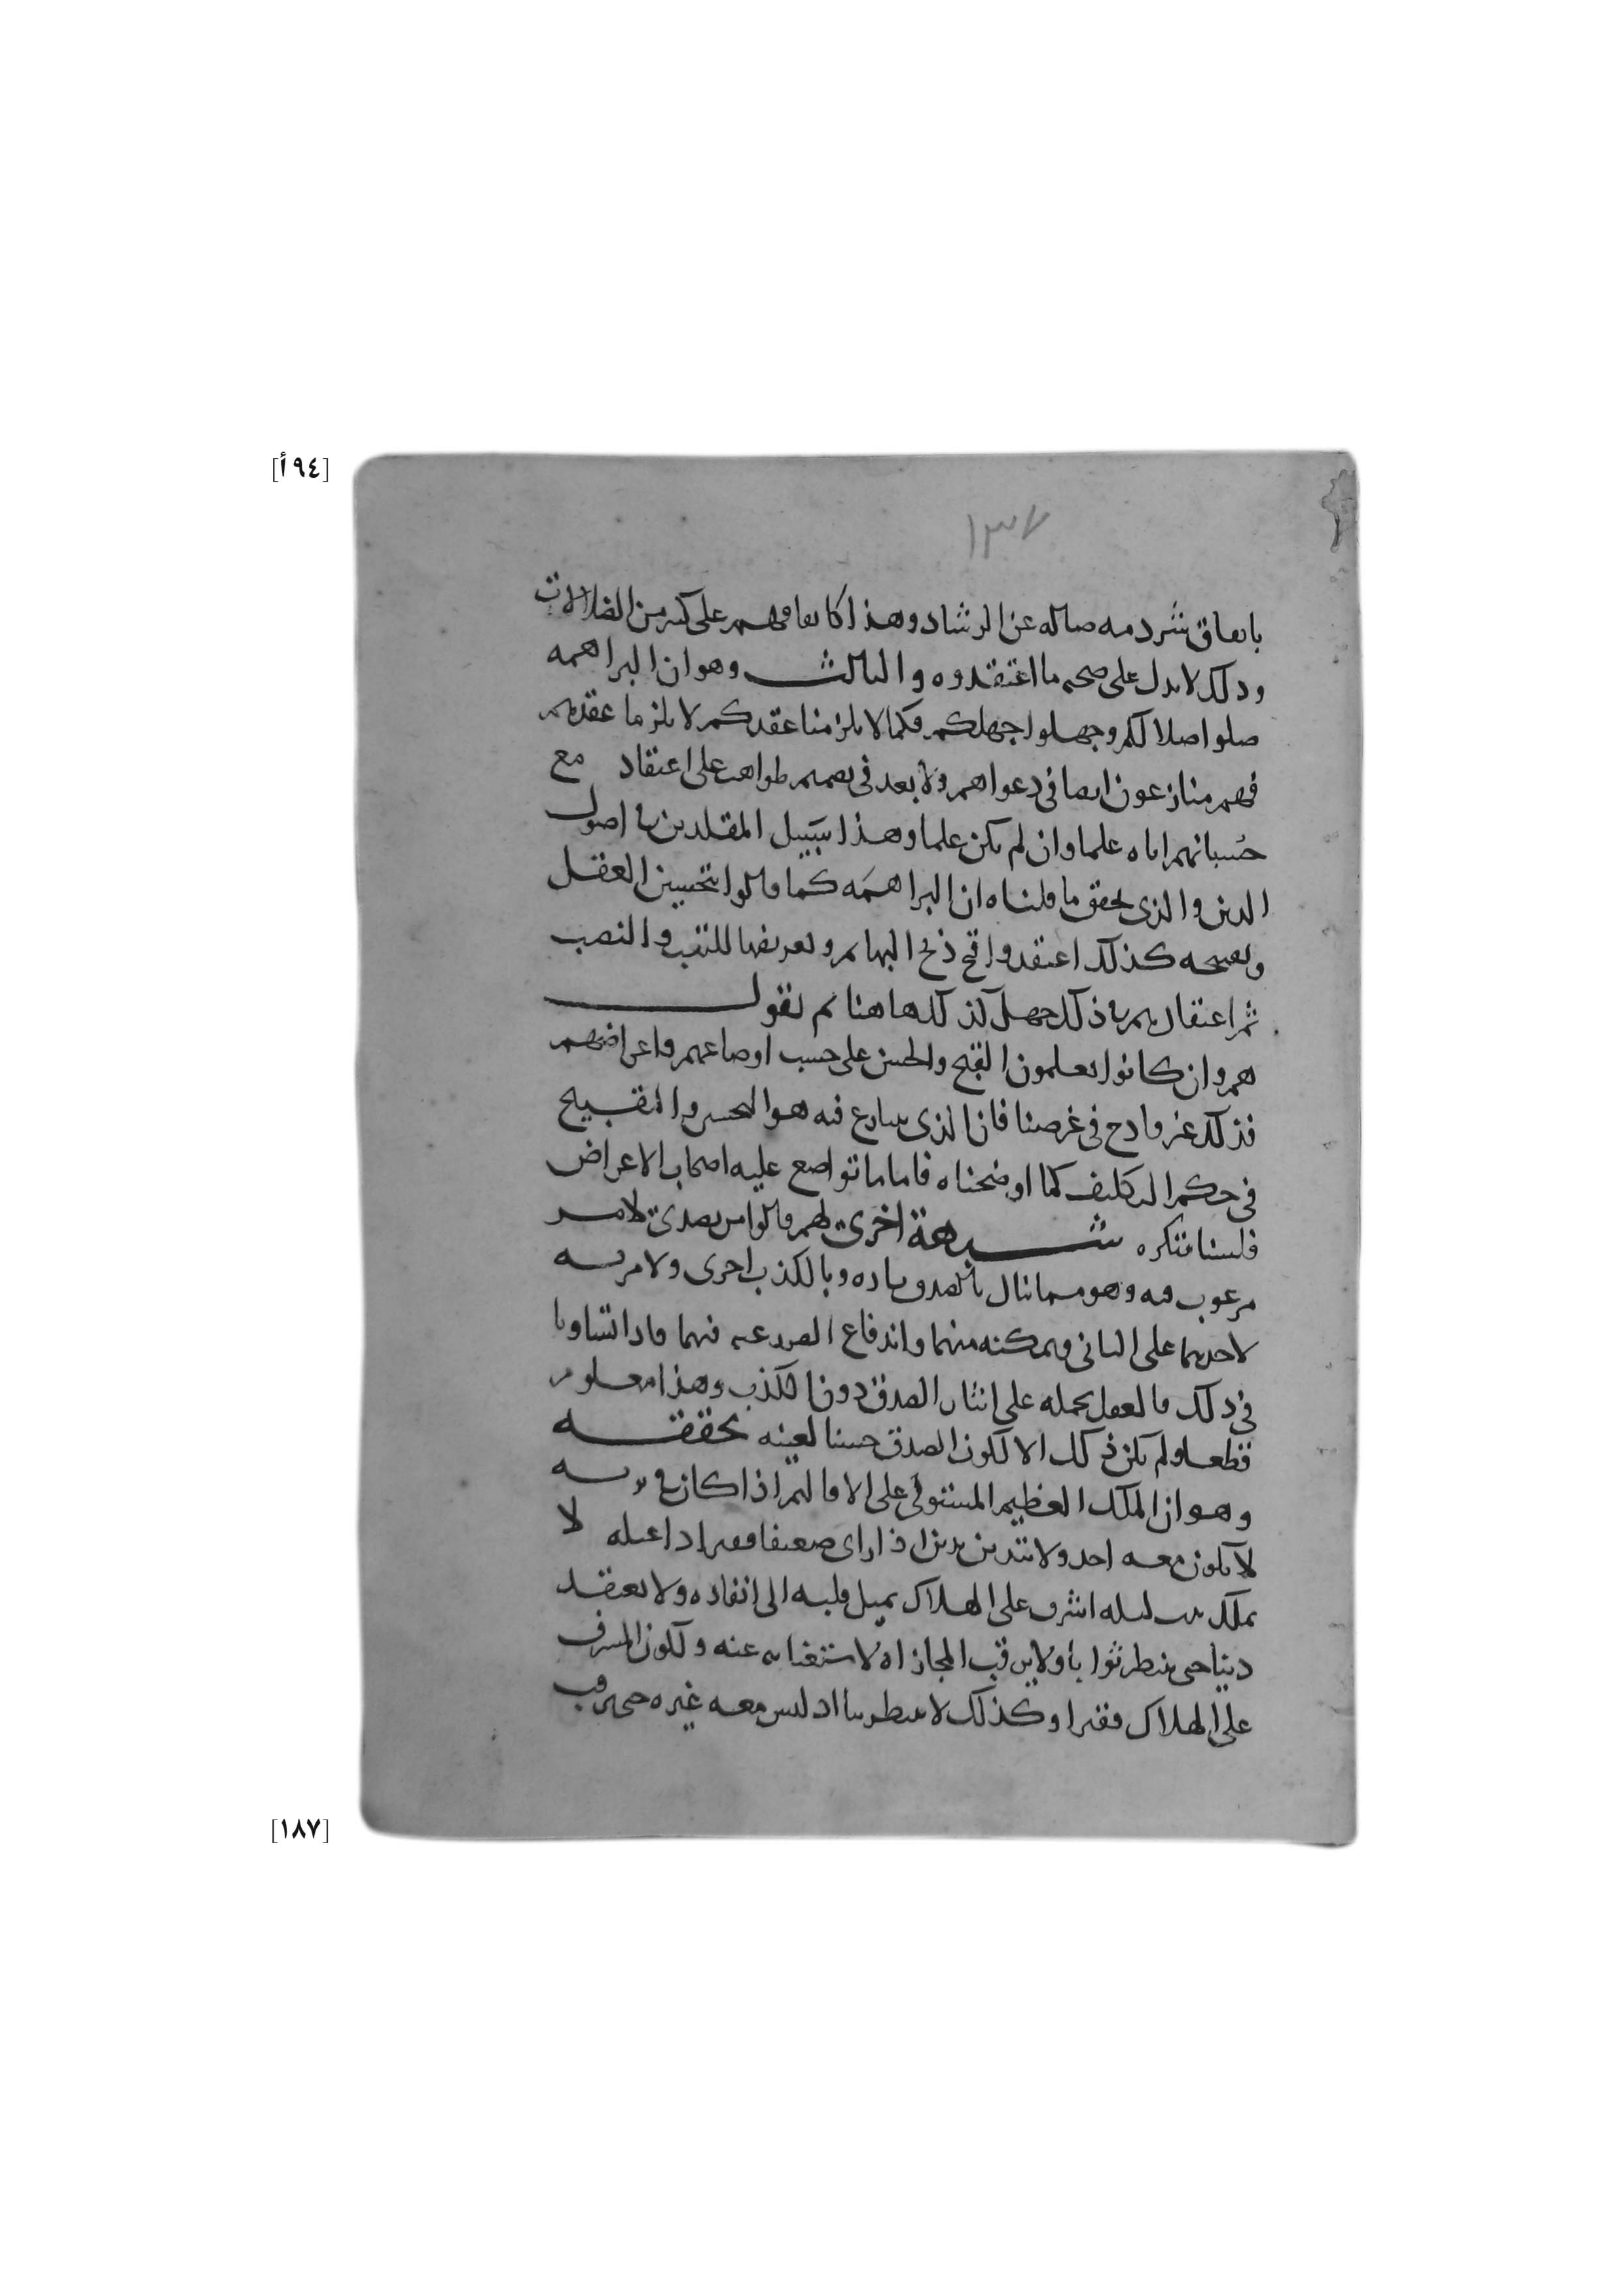 [٩٤ أ]
١٣٧
باتفاق شرذمه ضاله عن الرشاد وهذا كاتفاقهم على كثير من الضلالات
وذلك لا يدل على صحه ما اعتقدوه والثالث وهو ان البراهمه
ضلوا ضلالكم وجهلوا جهلكم فكما لا يلزمنا عقدكم لا يلزمنا عقدهم
فهم منازعون ايضا في دعواهم ولا بعد في تصميم طوائف على اعتقاد مع
حُسبانهم اياه علما وان لم يكن علما وهذا سبيل المقلدين في اصول
الدين والذي يحقق ما قلناه ان البراهمه كما قالوا بتحسين العقل
وتقبيحه كذلك اعتقدوا قبح ذبح البهائم وتعريضها للتعب والنصب
ثم اعتقادهم في ذلك جهل كذلك هاهنا ثم نقول
هم وان كانوا يعلمون القبح والحسن على حسب اوضاعهم واغراضهم
فذلك غير قادح في غرضنا فان الذي ننازع فيه هو التحسين والتقبيح
في حكم التكليف كما اوضحناه فاما ما تواضع عليه اصحاب الاغراض
فلسنا ننكره شبهة اخرى لهم قالوا من تصدى لامر
مرغوب فيه وهو مما ينال بالصدق تاره وبالكذب اخرى ولا مزيه
لاحدهما على الثاني وتمكنه منهما واندفاع الضرر عنه فيهما فاذا تساويا
في ذلك فالعقل يحمله على ايثار الصدق دون الكذب وهذا معلوم
قطعا ولم يكن ذلك الا لكون الصدق حسنا لعينه تحققه
وهو ان الملك العظيم المستولي على الاقاليم اذا كان في
لا يكون معه احد ولا يتدين بدين اذا راى ضعيفا فقيرا لا
يملك ليله اشرف على الهلاك يميل قلبه الى انقاذه ولا يعتقد
دينا حتى ينتظر ثوابا ولا يرقب المجازاه لاستغنائه عنه ولكون المشرف
على الهلاك فقيرا وكذلك لا ينتظر اذ ليس معه غيره حتى يرقب
[١٨٧]